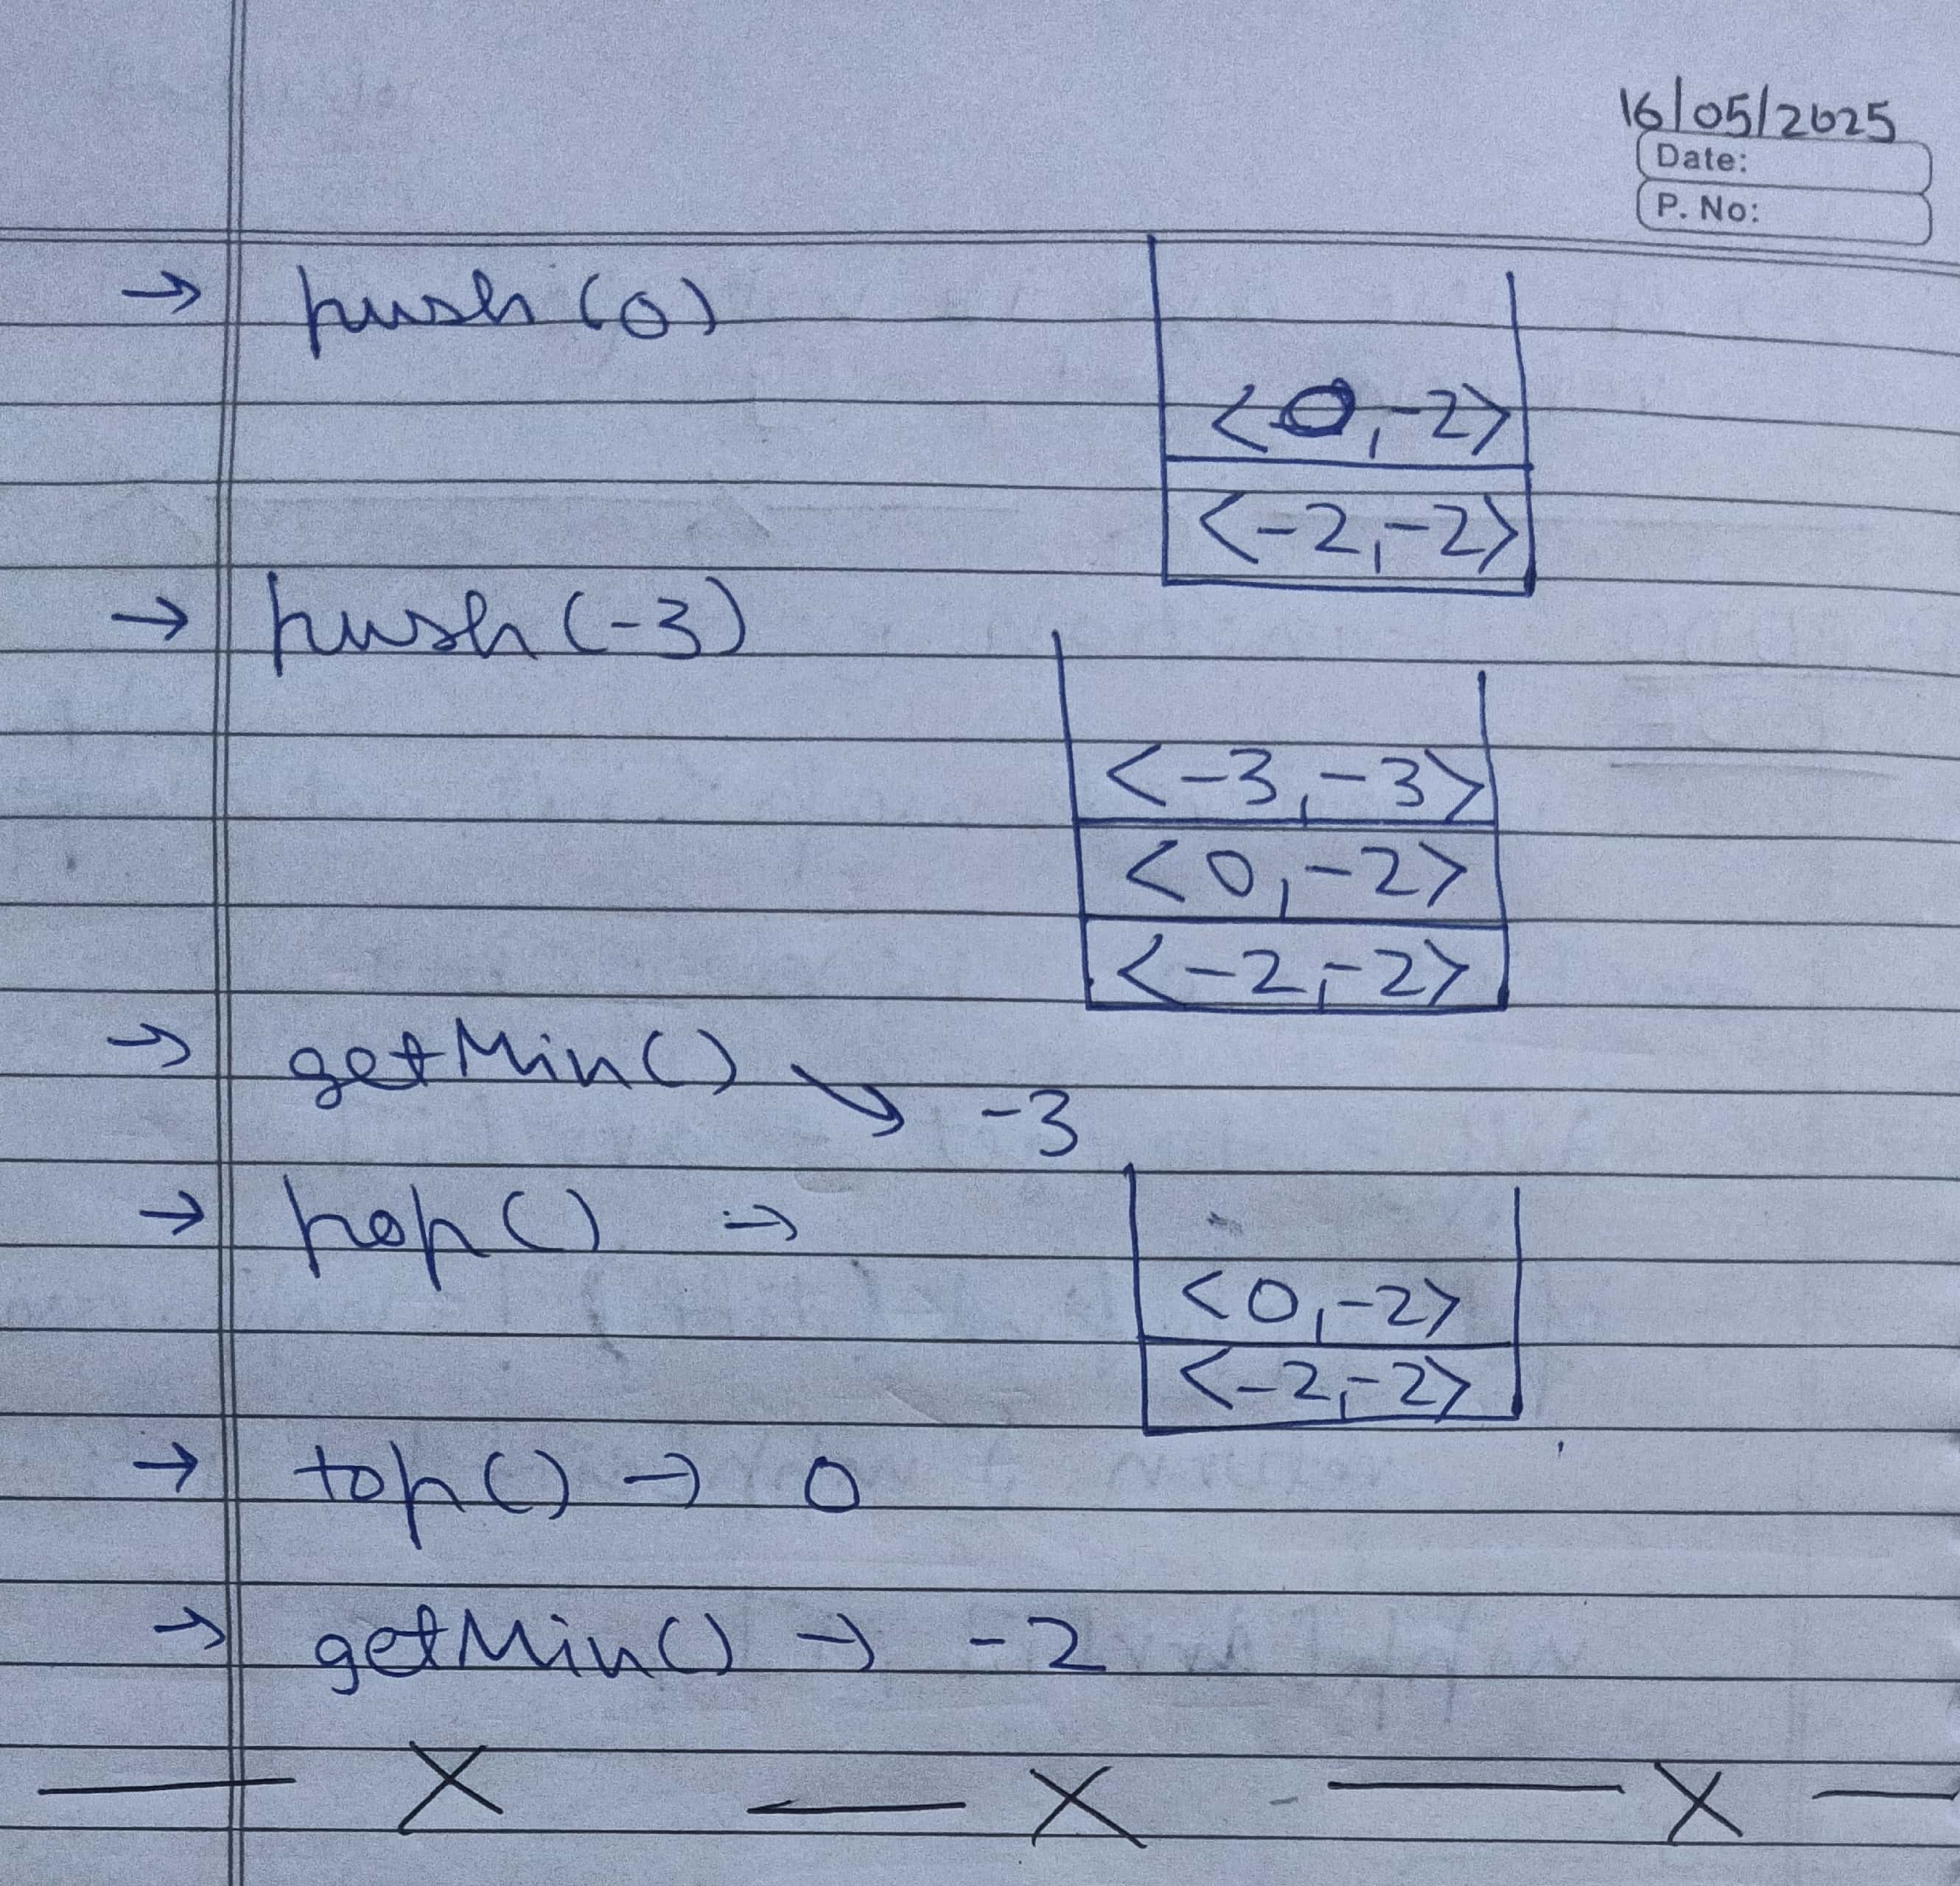 16/05/2025
Date:
P. No:
→ push(0)
<0,-2>
<-2,-2>
→ push(-3)
<-3,-3>
<0,-2>
<-2,-2>
→ getMin() ↘ -3
→ pop() →
<0,-2>
<-2,-2>
→ top() → 0
→ getMin() → -2
— X — X — X —